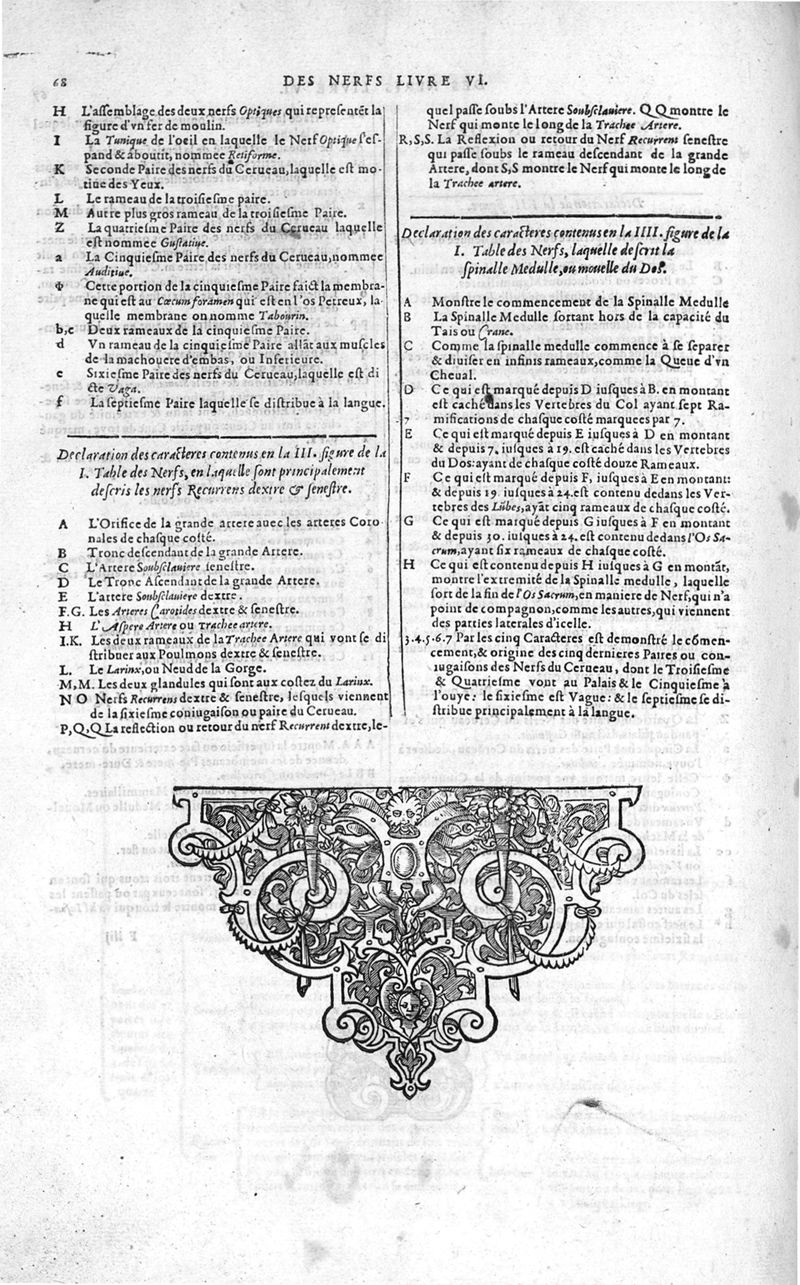 68
DES NERFS LIVRE VI.
H L'assemblage des deux nerfs Optiques qui representẽt la
figure d'vn fer de moulin.
I La Tunique de l'oeil en laquelle le Nerf Optique s'es-
pand & aboutit, nommee Retiforme.
K Seconde Paire des nerfs du Cerueau, laquelle est mo-
tiue des Yeux.
L Le rameau de la troisiesme paire.
M Autre plus gros rameau de la troisiesme Paire.
Z La quatriesme Paire des nerfs du Cerueau laquelle
est nommee Gustatiue.
a La Cinquiesme Paire des nerfs du Cerueau, nommee
Auditiue.
Φ Cette portion de la cinquiesme Paire faict la membra-
ne qui est au Cœcum foramen qui est en l'os Petreux, la-
quelle membrane on nomme Tabourin.
b,c Deux rameaux de la cinquiesme Paire.
d Vn rameau de la cinquiesme Paire allãt aux muscles
de la machouere d'embas, ou Inferieure.
e Sixiesme Paire des nerfs du Cerueau, laquelle est di
cte Vaga.
f La septiesme Paire laquelle se distribue à la langue.
Declaration des caracteres contenus en la III. figure de la
I. Table des Nerfs, en laquelle sont principalement
descris les nerfs Recurrens dextre & senestre.
A L'Orifice de la grande artere auec les arteres Coro-
nales de chasque costé.
B Tronc descendant de la grande Artere.
C L'Artere Soubsclauiere senestre.
D Le Tronc Ascendant de la grande Artere.
E L'artere Soubsclauiere dextre.
F.G. Les Arteres Carotides dextre & senestre.
H L'Aspere Artere ou Trachee artere.
I.K. Les deux rameaux de la Trachee Artere qui vont se di
stribuer aux Poulmons dextre & senestre.
L. Le Larinx, ou Neud de la Gorge.
M,M. Les deux glandules qui sont aux costez du Larinx.
N O Nerfs Recurrens dextre & senestre, lesquels viennent
de la sixiesme coniugaison ou paire du Cerueau.
P,Q,Q La reflection ou retour du nerf Recurrent dextre, le-
quel passe soubs l'Artere Soubsclauiere. Q Q montre le
Nerf qui monte le long de la Trachee Artere.
R,S,S. La Reflexion ou retour du Nerf Recurrent senestre
qui passe soubs le rameau descendant de la grande
Artere, dont S,S montre le Nerf qui monte le long de
la Trachee artere.
Declaration des caracteres contenus en la IIII. figure de la
I. Table des Nerfs, laquelle descrit la
spinalle Medulle, ou mouelle du Dos.
A Monstre le commencement de la Spinalle Medulle
B La Spinalle Medulle sortant hors de la capacité du
Tais ou Crane.
C Comme la spinalle medulle commence à se separer
& diuiser en infinis rameaux, comme la Queue d'vn
Cheual.
D Ce qui est marqué depuis D iusques à B. en montant
est caché dans les Vertebres du Col ayant sept Ra-
7 mifications de chasque costé marquees par 7.
E Ce qui est marqué depuis E iusques à D en montant
& depuis 7, iusques à 19. est caché dans les Vertebres
du Dos: ayant de chasque costé douze Rameaux.
F Ce qui est marqué depuis F, iusques à E en montant:
& depuis 19 iusques à 24. est contenu dedans les Ver-
tebres des Lũbes, ayãt cinq rameaux de chasque costé.
G Ce qui est marqué depuis G iusques à F en montant
& depuis 30. iusques à 24. est contenu dedans l'Os Sa-
crum, ayant six rameaux de chasque costé.
H Ce qui est contenu depuis H iusques à G en montãt,
montre l'extremité de la Spinalle medulle, laquelle
sort de la fin de l'Os Sacrum, en maniere de Nerf, qui n'a
point de compagnon, comme les autres, qui viennent
des parties laterales d'icelle.
3.4.5.6.7 Par les cinq Caracteres est demonstré le cõmen-
cement, & origine des cinq dernieres Paires ou con-
iugaisons des Nerfs du Cerueau, dont le Troisiesme
& Quatriesme vont au Palais & le Cinquiesme à
l'ouye: le sixiesme est Vague: & le septiesme se di-
stribue principalement à la langue.